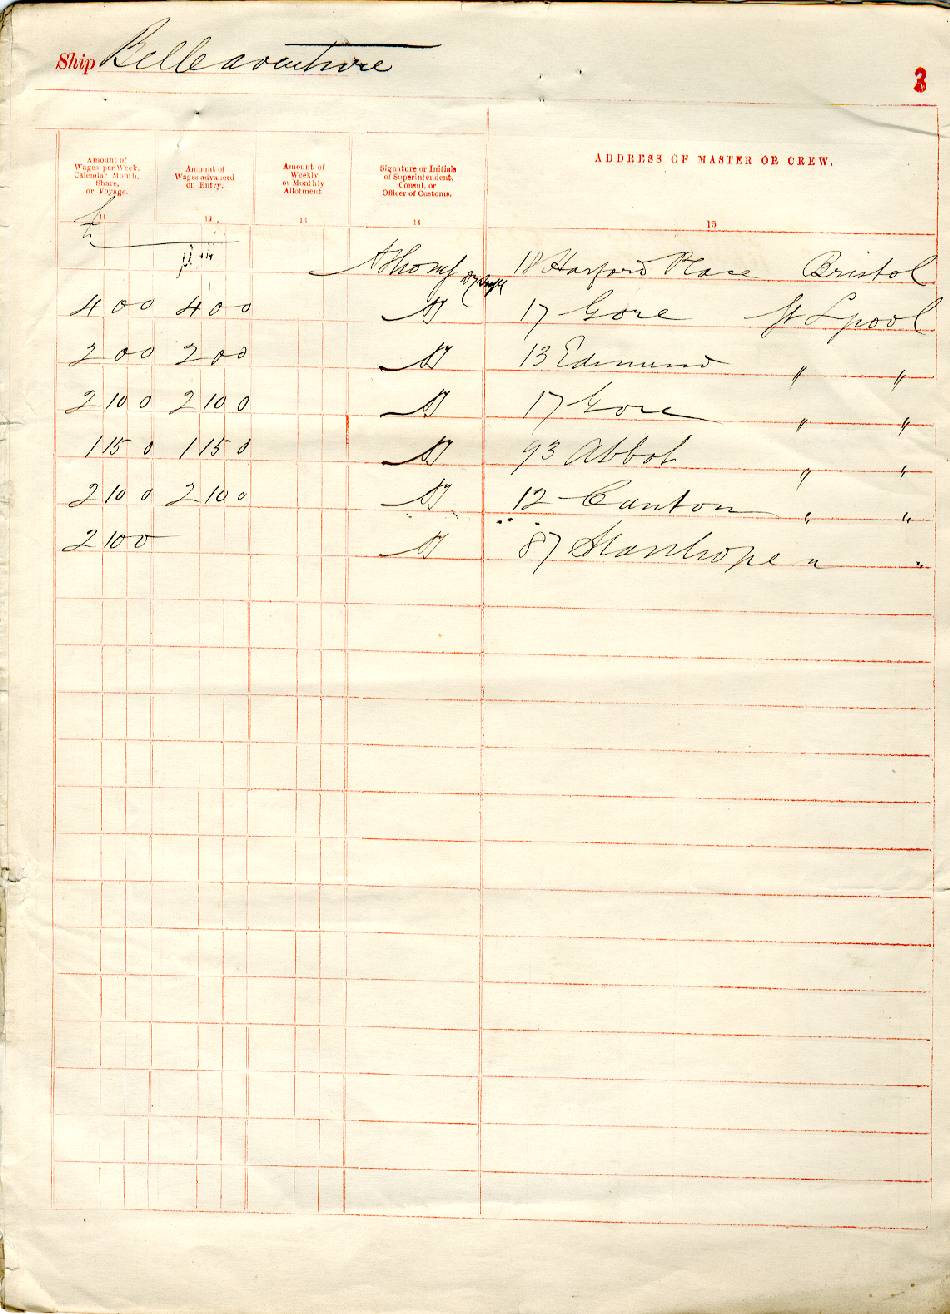 Ship Belleaventure
3
Amount of Wages per Week, Calendar Month, Share, or Voyage.
Amount of Wages advanced on Entry.
Amount of Weekly or Monthly Allotment
Signature or Initials of Superintendent, Consul, or Officer of Customs.
ADDRESS OF MASTER OR CREW.
11 12 13 14 15
18 Harford Place Bristol
4 0 0 4 0 0 17 Gore St Lpool
2 0 0 2 0 0 13 Edmund " "
2 10 0 2 10 0 17 Gore " "
1 15 0 1 15 0 93 Abbot " "
2 10 0 2 10 0 12 Canton " "
2 10 0 87 Stanhope " "